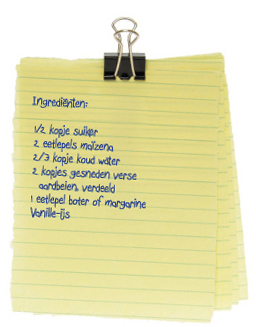 Ingrediënten:
1/2 kopje suiker
2 eetlepels maïzena
2/3 kopje koud water
2 kopjes gesneden verse
aardbeien, verdeeld
1 eetlepel boter of margarine
Vanille-ijs